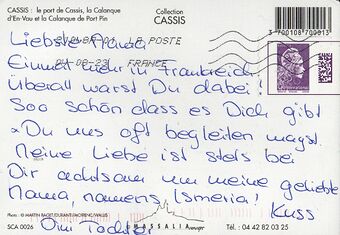 CASSIS : le port de Cassis, la Calanque
d'En-Vau et la Calanque de Port Pin
Collection
CASSIS
3 700108 700013
LA POSTE
FRANCE
Liebste
Einmal mehr in Frankreich
Überall warst Du dabei!
Soo schön dass es Dich gibt
Du uns oft begleiten magst.
Meine Liebe ist stets bei
Dir achtsam um meine geliebte
Mama, namens, Ismeria! Kuss
Photo : © MARTIN
SCA 0026
MASSALIA
Tél. : 04 42 82 03 25
Tochter